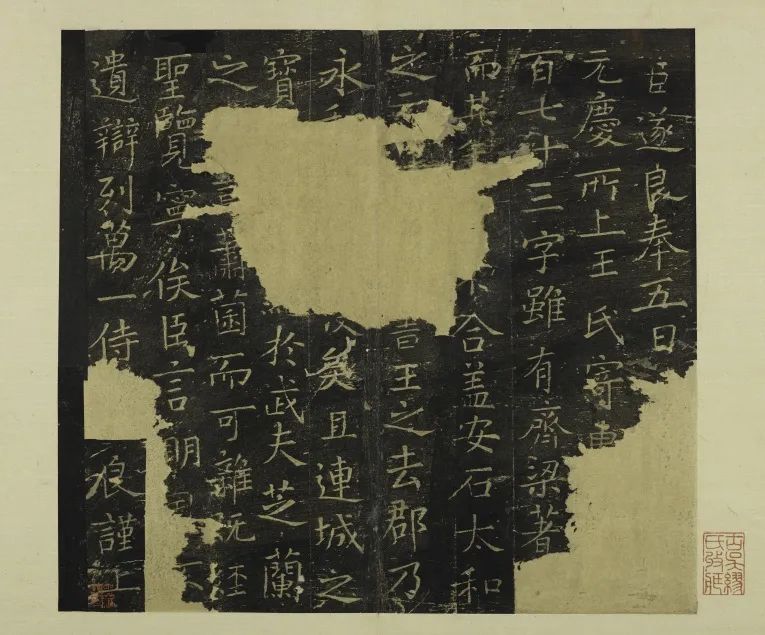 臣遂良奉五日
元慶所上王氏寄
百七十三字雖有齊梁著
而其 合蓋安石太和
之 言王之去郡乃
永 矣且連城之
寶 於武夫芝蘭
之 言蕭茵而可雜既經
聖覽寧俟臣言明
遺辯列萬一侍 狼謹上